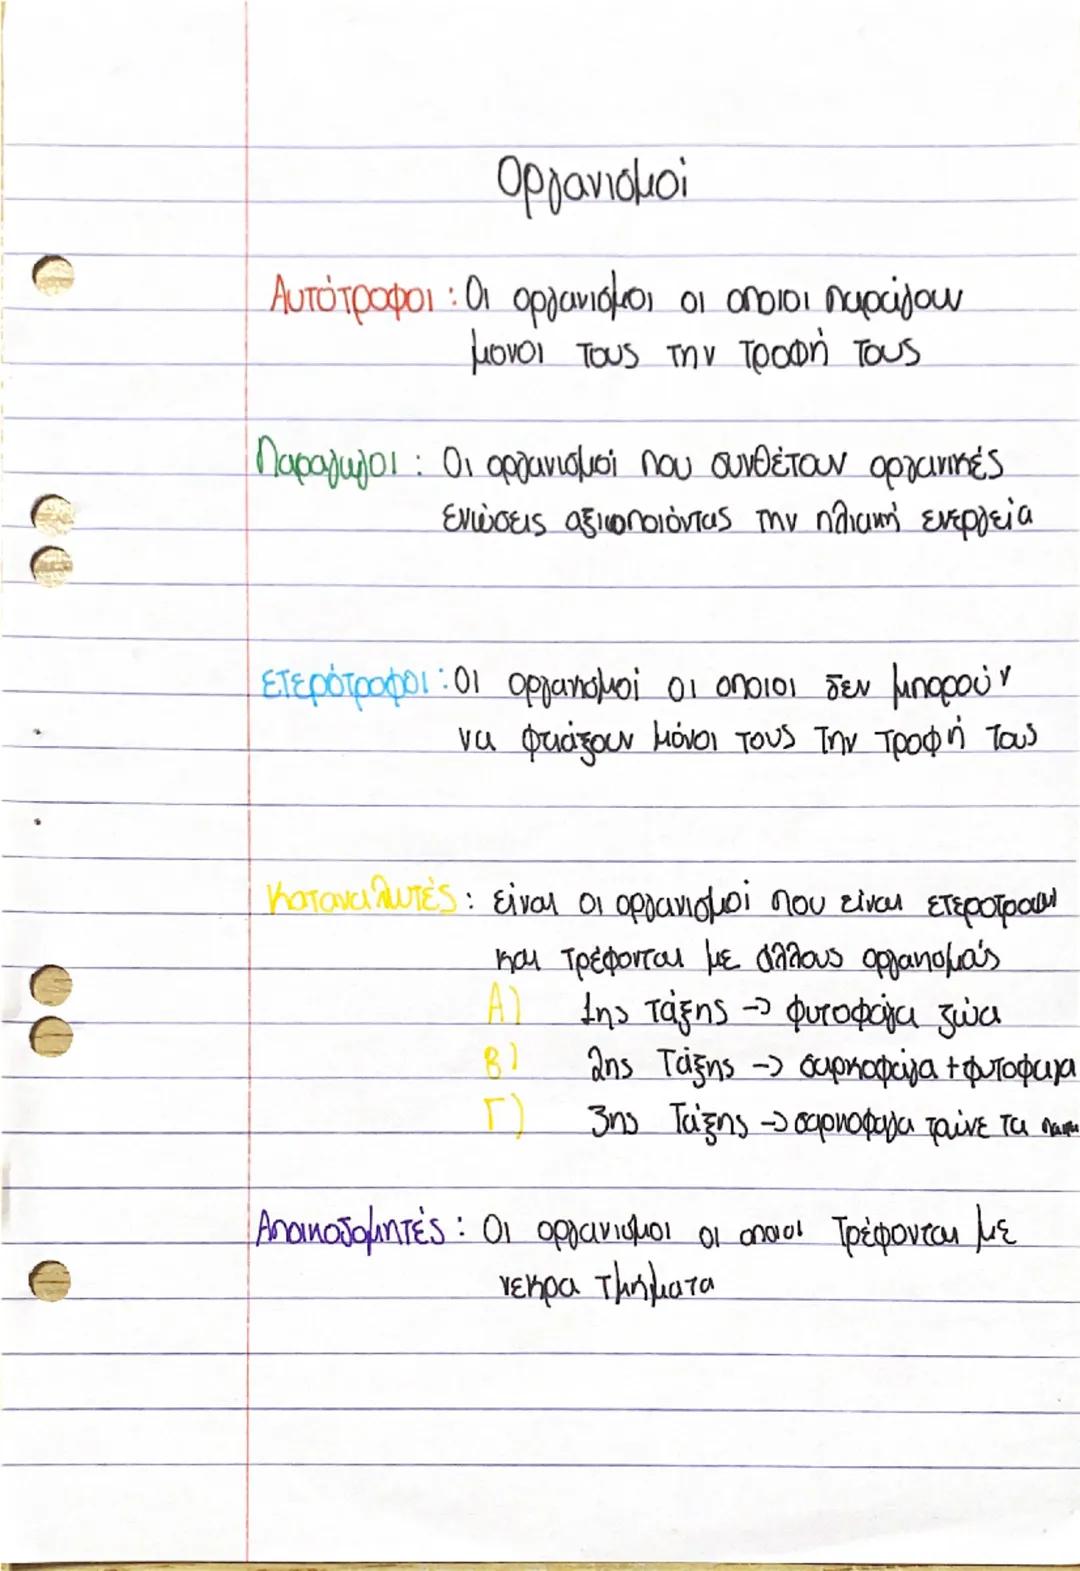 Οργανισμοί
Αυτότροφοι : Οι οργανισμοι οι οποιοι παράγουν
μονοι τους την τροφή τους
Παραγωγοι : Οι οργανισμοί που συνθέτουν οργανικές
ενώσεις αξιοποιόντας την ηλιακή ενεργεία
Ετερότροφοι : Οι οργανισμοί οι οποιοι δεν μπορούν
να φτιάξουν μόνοι τους την τροφή τους
Καταναλωτές : είναι οι οργανισμοί που είναι
και τρέφονται με άλλους οργανισμούς
Α) 1ης τάξης -> φυτοφάγα ζώα
Β) 2ης Τάξης -> σαρκοφάγα + φυτοφαγα
Γ) 3ης Τάξης -> σαρκοφαγα τρώνε τα
Αποικοδομητές : Οι οργανισμοι οι οποιοι Τρέφονται με
νεκρα τμήματα